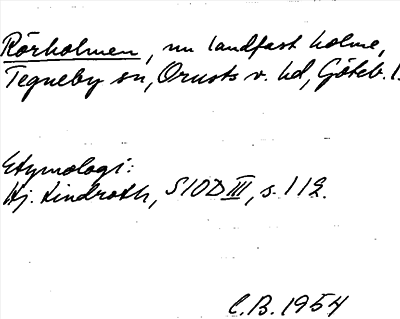 Rörholmen, nu landfast holme,
Tegneby sn, Orusts v. hd, Göteb. l.
Etymologi:
Hj. Lindroth, SIOD III, s. 112.
C.B. 1954